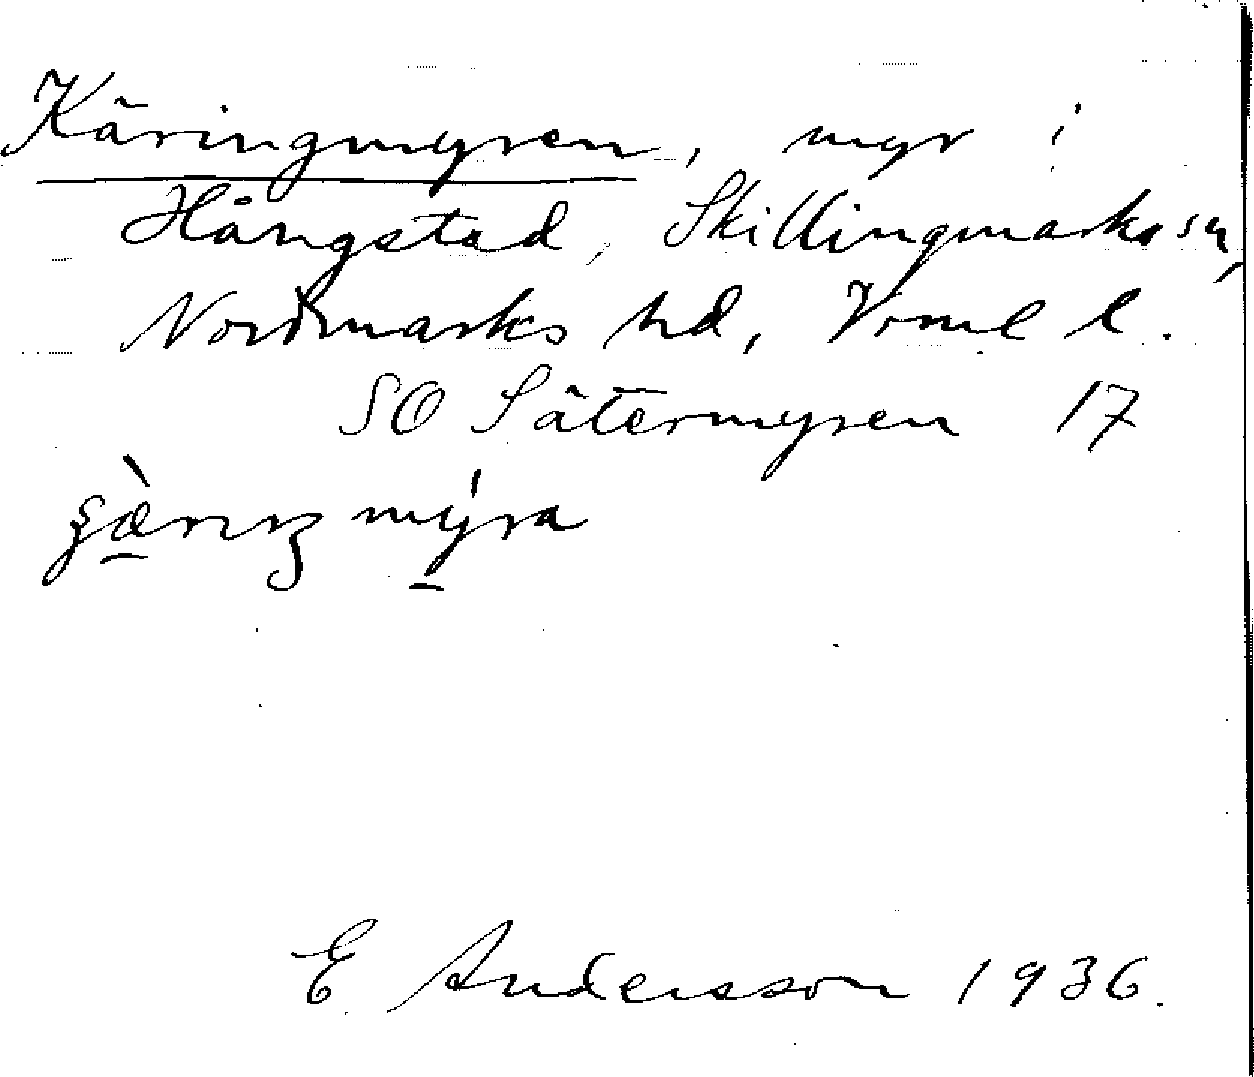 Käringmyren, myr i
Hångstad, Skillingmarks sn,
Nordmarks hd, Vrml l.
SO Sätermyren 17
E Andersson 1936.